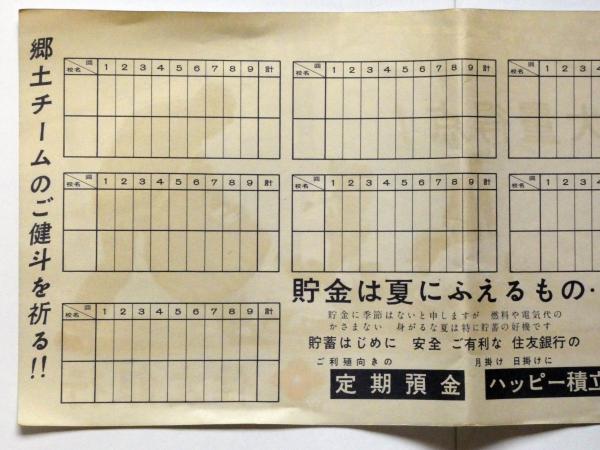 郷土チームのご健斗を祈る!!
回 1 2 3 4 5 6 7 8 9 計
校名
回 1 2 3 4 5 6 7 8 9 計
校名
回 1 2 3 4
校名
回 1 2 3 4 5 6 7 8 9 計
校名
回 1 2 3 4 5 6 7 8 9 計
校名
回 1 2 3 4
校名
回 1 2 3 4 5 6 7 8 9 計
校名
貯金は夏にふえるもの・
貯金に季節はないと申しますが 燃料や電気代の
かさまない 身がるな夏は特に貯蓄の好機です
貯蓄はじめに 安全 ご有利な 住友銀行の
ご利殖向きの 月掛け 日掛けに
定期預金 ハッピー積立